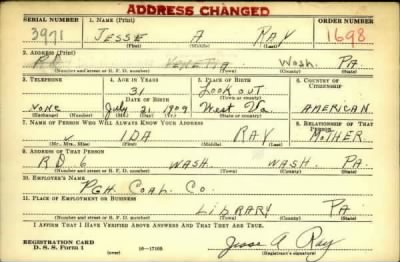 ADDRESS CHANGED
SERIAL NUMBER 1. NAME (Print) ORDER NUMBER
3971 JESSE A RAY 1698
(First) (Middle) (Last)
2. ADDRESS (Print)
RD VENETIA Wash. PA
(Number and street or R. F. D. number) (Town) (County) (State)
3. TELEPHONE 4. AGE IN YEARS 5. PLACE OF BIRTH 6. COUNTRY OF CITIZENSHIP
31 LOOKOUT
DATE OF BIRTH (Town or county)
NONE July 21 1909 West Va AMERICAN
(Mo.) (Day) (Yr.) (State or country)
7. NAME OF PERSON WHO WILL ALWAYS KNOW YOUR ADDRESS 8. RELATIONSHIP OF THAT PERSON
IDA RAY MOTHER
(Mr., Mrs., Miss) (First) (Middle) (Last)
9. ADDRESS OF THAT PERSON
RD 6 WASH. WASH. PA.
(Number and street or R. F. D. number) (Town) (County) (State)
10. EMPLOYER'S NAME
PGH. COAL. CO.
11. PLACE OF EMPLOYMENT OR BUSINESS
LIBRARY PA.
(Number and street or R. F. D. number) (Town) (County) (State)
I AFFIRM THAT I HAVE VERIFIED ABOVE ANSWERS AND THAT THEY ARE TRUE.
REGISTRATION CARD
D. S. S. Form 1 (over) 16—17105 Jesse A Ray
(Registrant's signature)